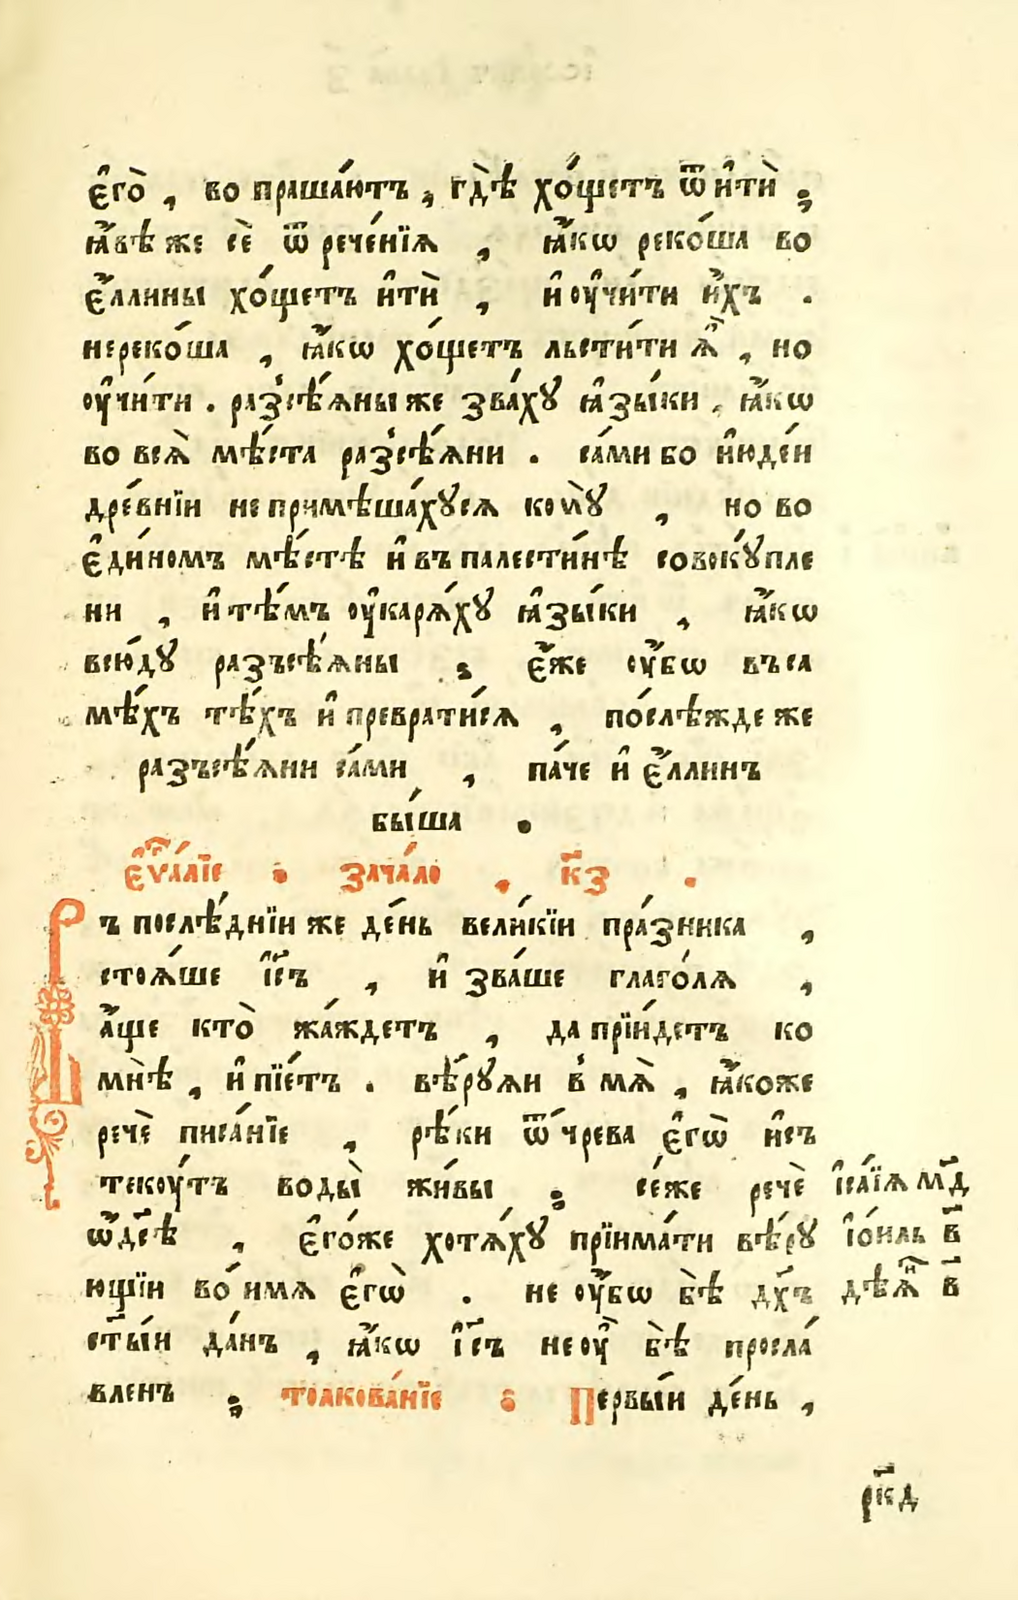 є҆го̀ , во прашаютъ , гдѣ̀ хо́щетъ ѿ и҆тѝ ;
ꙗ҆́вѣ же сѐ ѿ рече́нїѧ , ꙗ҆́кѡ реко́ша во
є҆́ллины хо́щетъ и҆тѝ , и҆ ᲂу҆чи́ти и҆́хъ .
нереко́ша , ꙗ҆́кѡ хо́щетъ льсти́ти ѧ҆̀ , но
ᲂу҆чи́ти . разсѣ́ѧны же зва́хꙋ ꙗ҆зы́ки , ꙗ҆́кѡ
во всѧ̀ мѣ́ста разсѣ́ѧни . са́ми бо и҆юде́и
дре́внїи не примѣша́хꙋсѧ комꙋ̀ , но во
є҆ди́номъ мѣ́стѣ и҆ въ палести́нѣ совокꙋ́пле
ни , и҆ тѣ́мъ ᲂу҆карѧ́хꙋ ꙗ҆зы́ки , ꙗ҆́кѡ
всю́дꙋ разъсѣ́ѧны ; є҆́же ᲂу҆́бѡ въ са
мѣ́хъ тѣ́хъ и҆ преврати́сѧ , по́слѣжде же
разъсѣ́ѧни са́ми , па́че и҆ є҆́ллинъ
бы́ша .
є҆ѵⷢ҇алїе . зача́ло . к҃з .
Въ послѣ́днїи же де́нь вели́кїи пра́зника ,
стоѧ́ше і҆с҃ъ , и҆ зва́ше глаго́лѧ ,
а҆́ще кто̀ жа́ждетъ , да прїи́детъ ко
мнѣ̀ , и҆ пїе́тъ . вѣ́рꙋѧи в̾ мѧ̀ , ꙗ҆́коже
речѐ писа́нїе , рѣ́ки ѿ чрева є҆гѡ̀ и҆съ
текꙋ́тъ воды̀ жи́вы ; се́же речѐ
ѡ҆ дс҃ѣ , є҆го́же хотѧ́хꙋ прїима́ти вѣ́рꙋ
ющїи во́ имѧ є҆гѡ̀ . не ᲂу҆́бѡ бѣ̀ дх҃ъ
ст҃ы́и да́нъ , ꙗ҆́кѡ і҆с҃ъ не ᲂу҆̀ бѣ̀ просла́
вленъ ; толкова́нїе . Первы́и де́нь ,
і҆са́їѧ м҃д
і҆ои́ль в҃
дѣѧⷩ҇ в҃
рк҃д